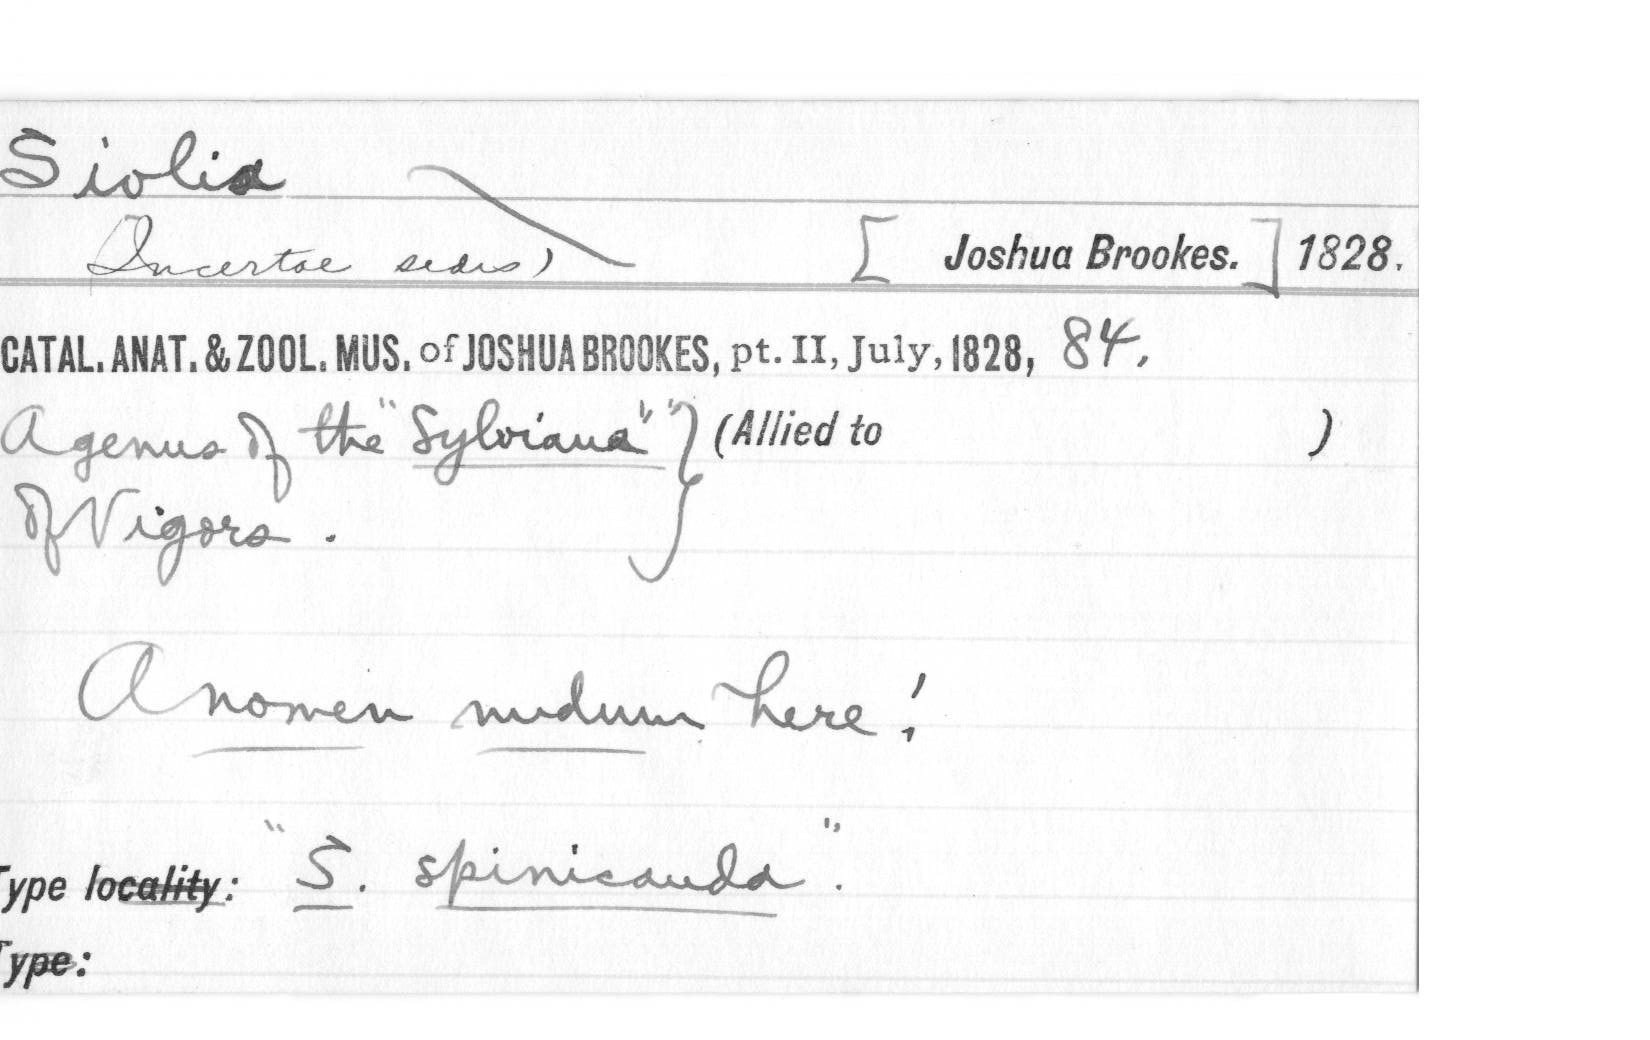 Siolia
Incertae sedis)
[Joshua Brookes.] 1828.
CATAL. ANAT. & ZOOL. MUS. of JOSHUA BROOKES, pt. II, July, 1828, 84.
A genus of the "Sylviana"" } (Allied to )
of Vigors.
A nomen nudum here!
Type locality: "S. spinicauda".
Type: